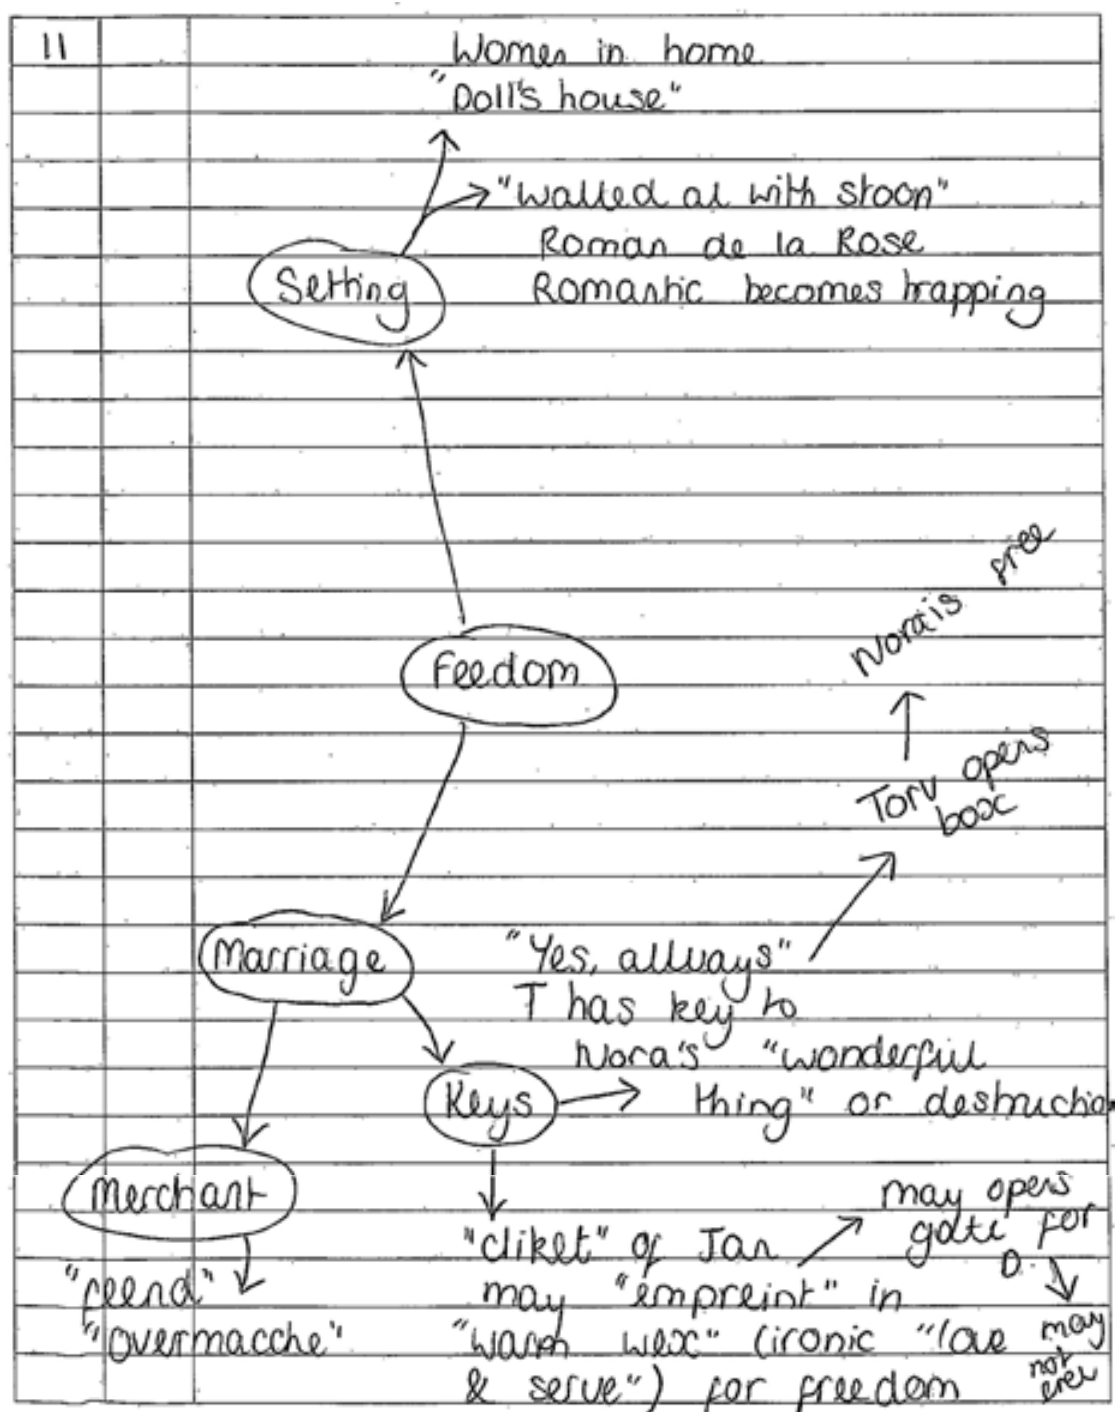 11
Women in home
"Doll's house"
"Walled al with stoon"
Roman de la Rose
Romantic becomes trapping
Setting
Feedom
Nora is free
Torv opens
box
Marriage
"Yes, allways"
T has key to
Nora's "wonderful
thing" or destruction
Keys
Merchant
"feend"
"overmacche"
"cliket" of Jan
may "empreint" in
"warm wex" (ironic "love
& serve") for freedom
may opens
gate for
D.
may
not